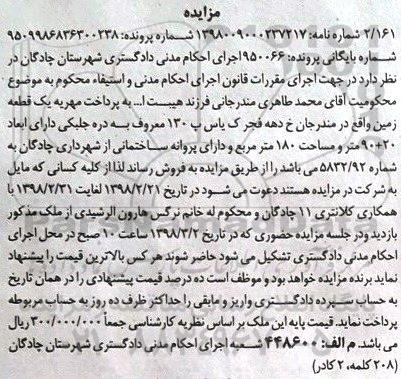 مزایده
۲/۱۶۱ شماره نامه: ۱۳۹۸۰۰۹۰۰۰۲۳۷۲۱۷ شماره پرونده: ۹۵۰۹۹۸۶۸۳۶۳۰۰۲۳۸
شماره بایگانی پرونده: ۹۵۰۰۶۶ اجرای احکام مدنی دادگستری شهرستان چادگان در
نظر دارد در جهت اجرای مقررات قانون اجرای احکام مدنی و استیفاء محکوم به موضوع
محکومیت آقای محمد طاهری مندرجانی فرزند هیبت ا... به پرداخت مهریه یک قطعه
زمین واقع در مندرجان خ دهه فجر ک یاس پ ۱۳۰ معروف به دره جلبکی دارای ابعاد
۲۰+۹۰ متر و مساحت ۱۸۰ متر مربع و دارای پروانه ساختمانی از شهرداری چادگان به
شماره ۵۸۳۲/۹۲ می باشد را از طریق مزایده به فروش رساند لذا از کلیه کسانی که مایل
به شرکت در مزایده هستند دعوت می شود در تاریخ ۱۳۹۸/۲/۲۱ لغایت ۱۳۹۸/۲/۳۱ با
همکاری کلانتری ۱۱ چادگان و محکوم له خانم نرگس هارون الرشیدی از ملک مذکور
بازدید ودر جلسه مزایده حضوری که در تاریخ ۱۳۹۸/۳/۲ ساعت ۱۰ صبح در محل اجرای
احکام مدنی دادگستری تشکیل می شود حاضر شوند هر کس بالاترین قیمت را پیشنهاد
نماید برنده مزایده خواهد بود و موظف است ده درصد قیمت پیشنهادی را در همان تاریخ
به حساب سپرده دادگستری واریز و مابقی را حداکثر ظرف ده روز به حساب مربوطه
پرداخت نماید. قیمت پایه این ملک بر اساس نظریه کارشناسی جمعاً ۳۰۰/۰۰۰/۰۰۰ ریال
می باشد. م الف: ۴۴۸۶۰۰ شعبه اجرای احکام مدنی دادگستری شهرستان چادگان
(۲۰۸ کلمه، ۲ کادر)